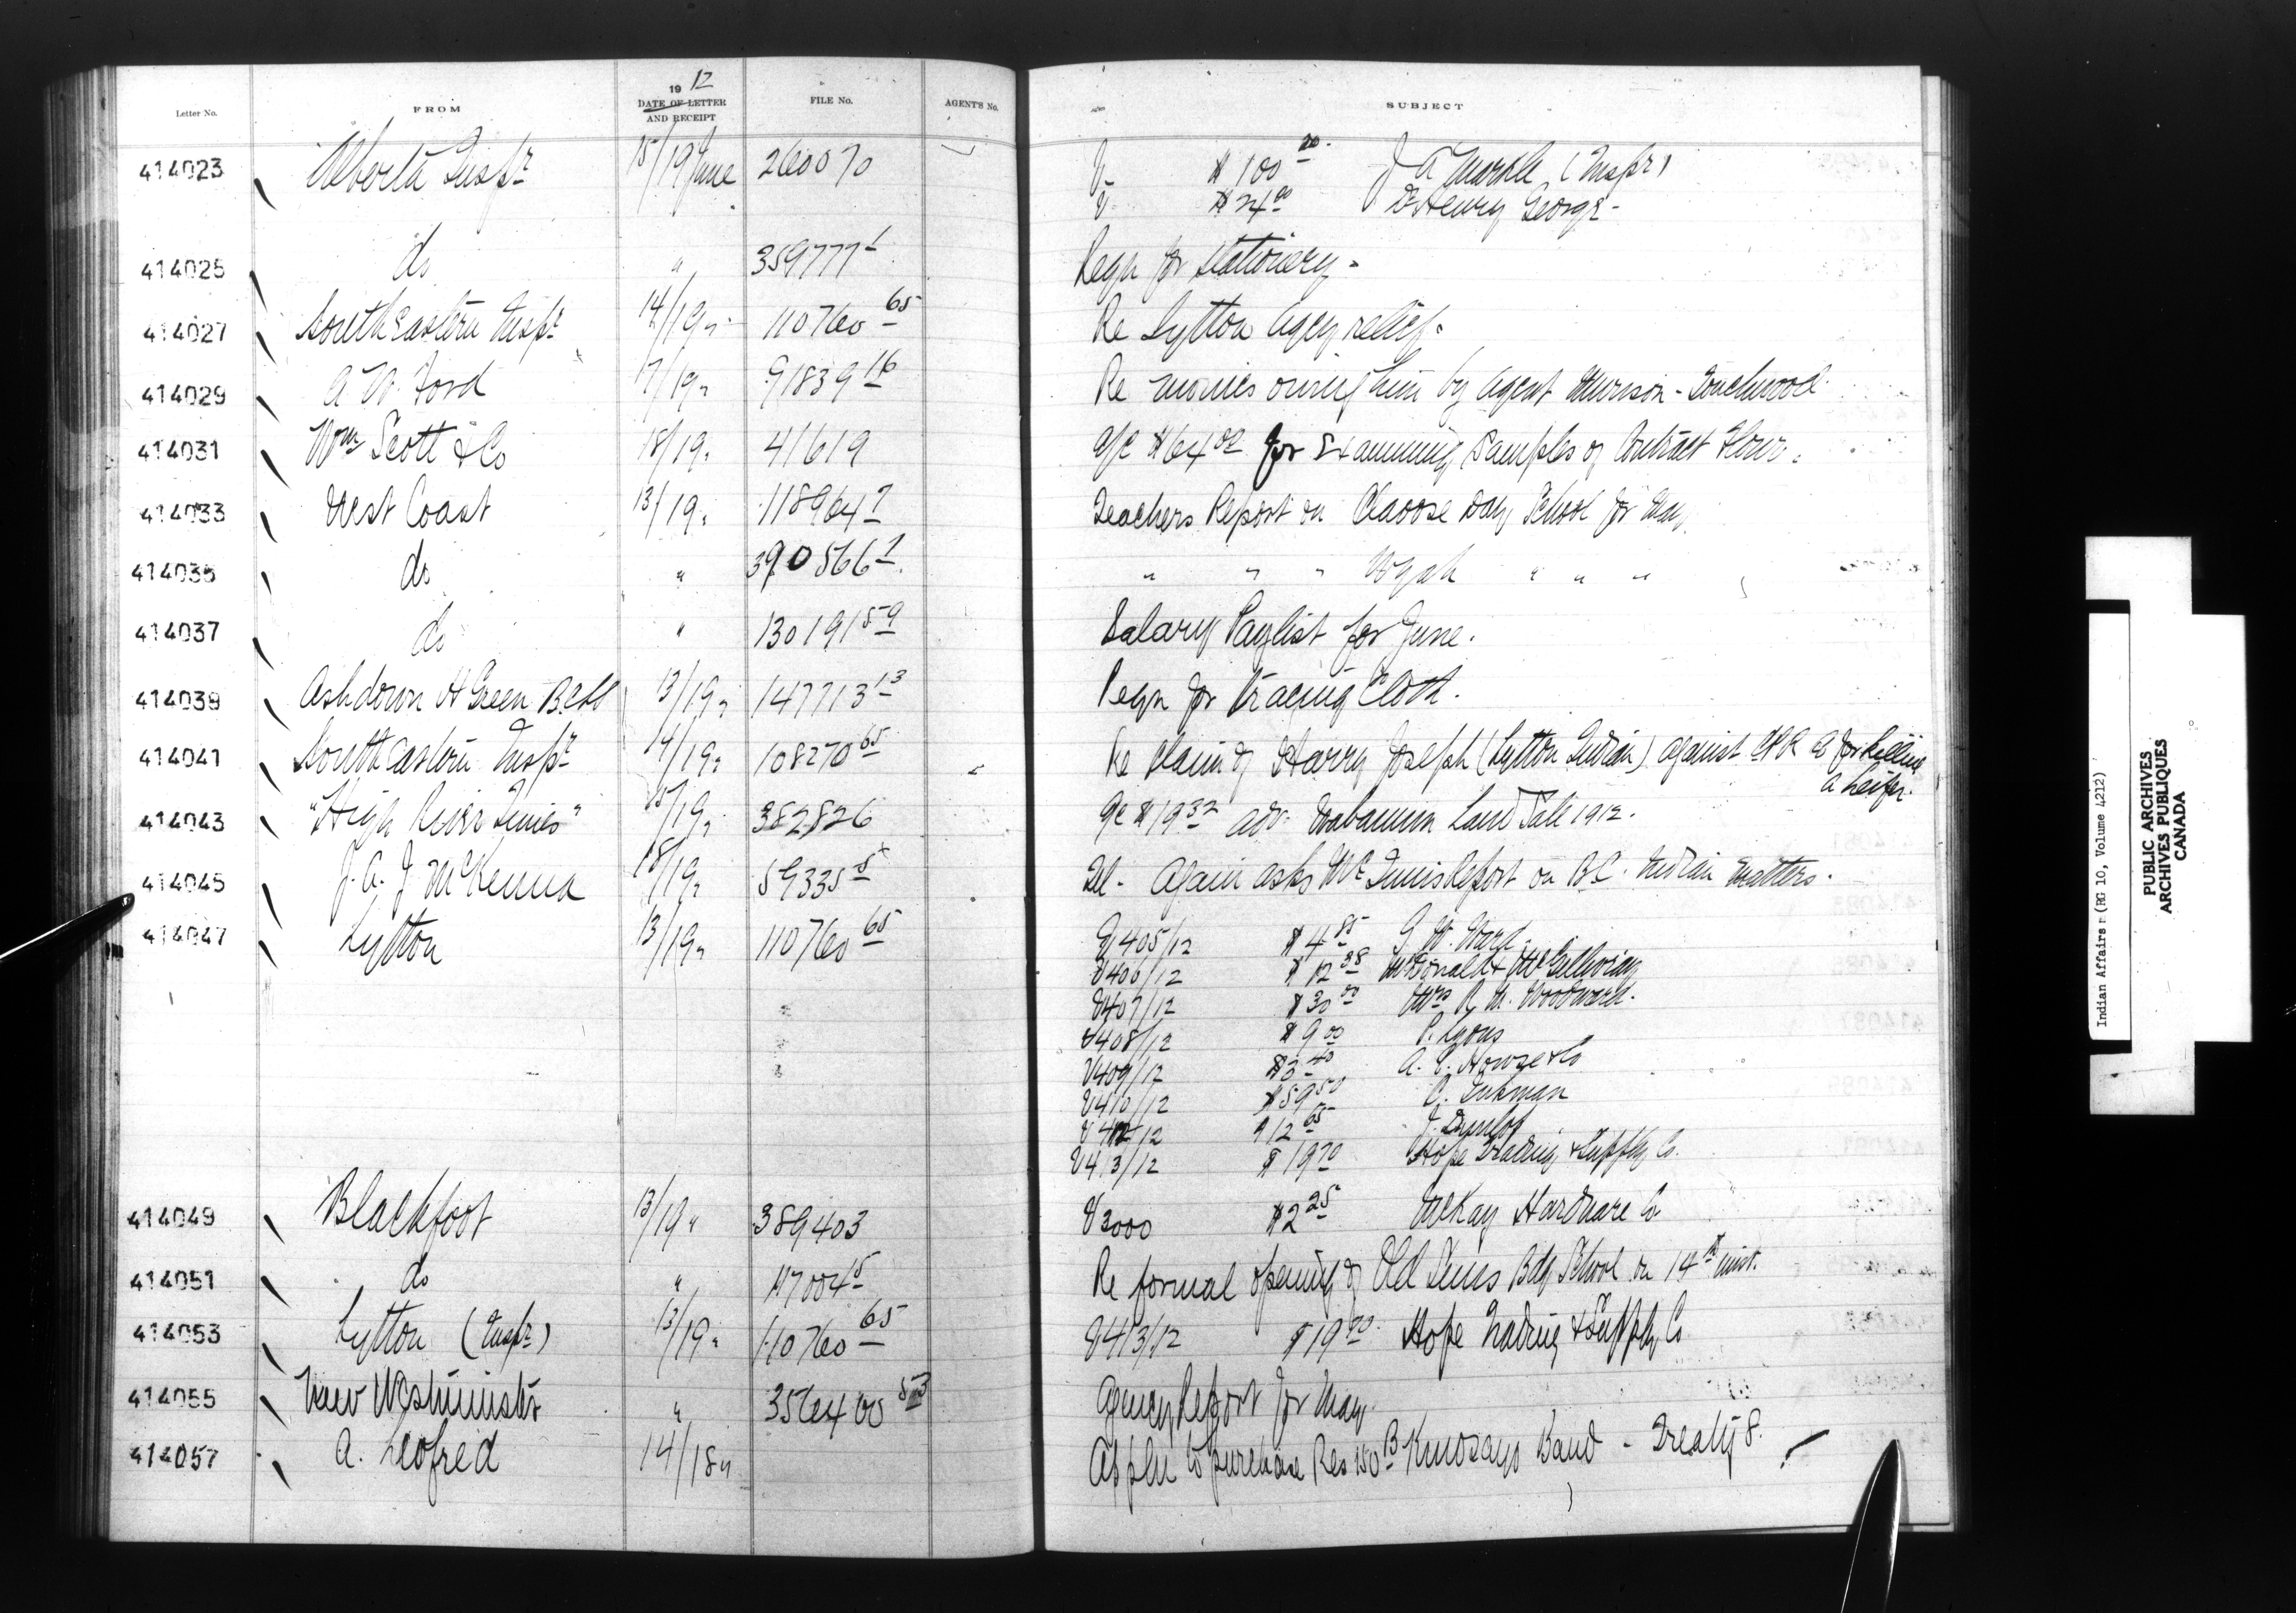 Letter No. FROM 19 12 DATE OF LETTER AND RECEIPT FILE No. AGENT'S No. SUBJECT
414023 Alberta Inspr 15/19 June 260070 V $100 00 J A Markle (Inspr)
V $24 00 Dr Henry George
414025 do " 359777 1 Reqn for stationery
414027 South Eastern Inspr 14/19 " 110760 65 Re Lytton Agcy relief.
414029 A. W. Ford 17/19 " 91839 16 Re monies owing him by Agent Murison - Touchwood
414031 Wm Scott & Co 18/19 " 41619 A/c $64 00 for Examining Samples of Contract Flour.
414033 West Coast 13/19 " 118964 7 Teachers Report on Claoose Day School for May
414035 do " 390566 1 " " " Wyah " " "
414037 do " 130191 59 Salary Paylist for June.
414039 Ashdown H Green 13/19 " 147713 13 Reqn for Tracing Cloth.
414041 South Eastern Inspr 14/19 " 108270 65 Re Claim of Harry Joseph (Lytton Indian) against CPR Co for killing
a heifer.
414043 "High River Times" 15/19 " 382826 A/c $19 32 adv. Wabamun Land Sale 1912.
414045 J. A. J. McKenna 18/19 " 59335 5 Tel - Again asks McInnis Report on B.C. Indian Matters.
414047 Lytton 13/19 " 110760 65 V405/12 $4 85 G. W. Ward
V406/12 $12 38 McDonald & McGillivray
V407/12 $30 00 Mrs R. M. Woodward.
V408/12 $9 00 P. Lyons
V409/12 $3 40 A. E. Howse & Co
V410/12 $59 50
V412/12 $12 65 J. Dunlop
V413/12 $19 70 Hope Trading & Supply Co.
414049 Blackfoot 13/19 " 389403 V3000 $2 25 McKay Hardware Co
414051 do " 117004 5 Re formal opening of Old Suns Bdg School on 14th inst.
414053 Lytton (Inspr) 13/19 " 110760 65 V413/12 $19 70 Hope Trading & Supply Co
414055 New Westminster " 356400 53 Agency Report for May.
414057 A. Leofred 14/18 " Appln to purchase Res 150 B Band - Treaty 8.
Indian Affairs (RG 10, Volume 4212)
PUBLIC ARCHIVES
ARCHIVES PUBLIQUES
CANADA